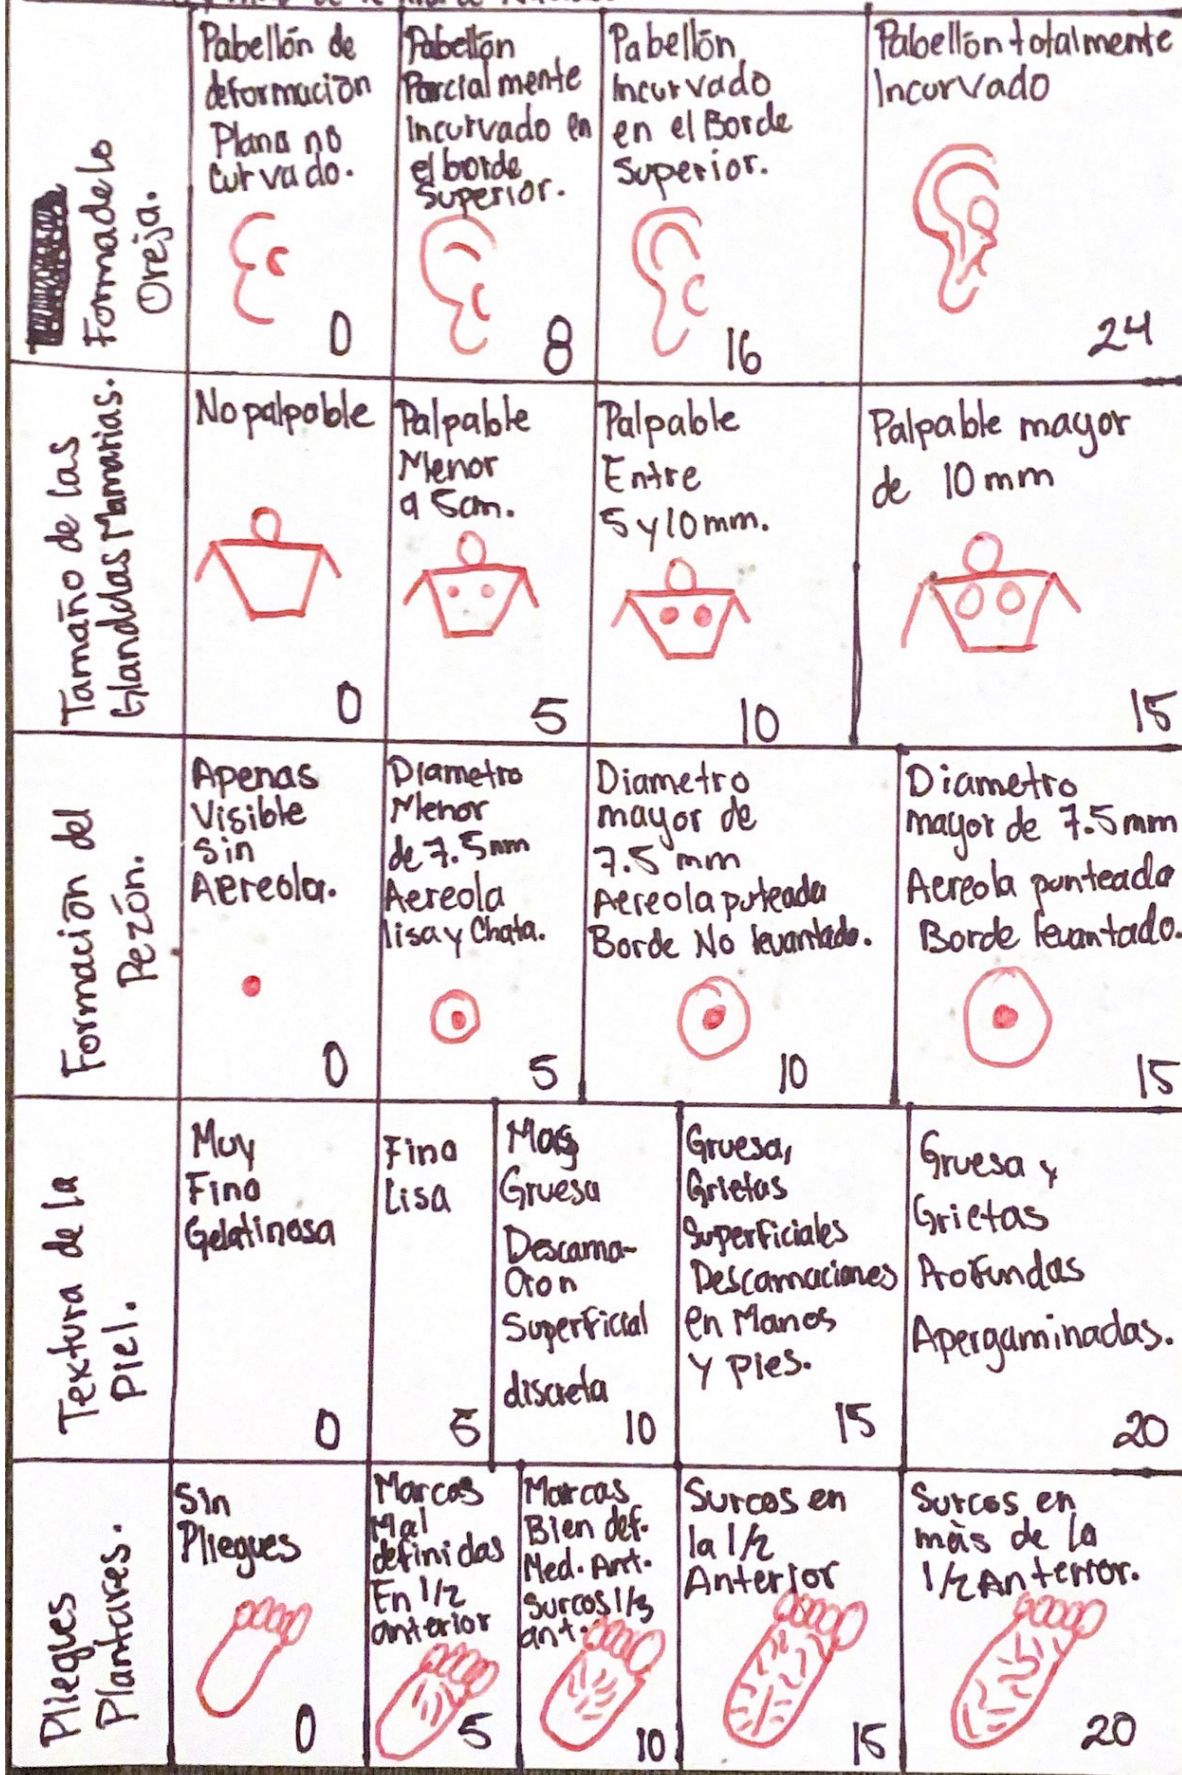 Forma de la
Oreja.
Pabellón de
deformación
Plana no
Curvado.
0
Pabellón
Parcialmente
Incurvado en
el borde
Superior.
8
Pabellón
Incurvado
en el Borde
Superior.
16
Pabellón totalmente
Incurvado
24
Tamaño de las
Glanddas Mamarias.
No palpable
0
Palpable
Menor
a 5cm.
5
Palpable
Entre
5 y 10 mm.
10
Palpable mayor
de 10 mm
15
Formación del
Pezón.
Apenas
Visible
Sin
Aereola.
0
Diametro
Menor
de 7.5mm
Aereola
lisa y Chata.
5
Diametro
mayor de
7.5 mm
Aereola puteada
Borde No levantado.
10
Diametro
mayor de 7.5 mm
Aereola punteada
Borde levantado.
15
Textura de la
Piel.
Muy
Fina
Gelatinosa
0
Fina
Lisa
5
Mas
Gruesa
Descama-
cion
Superficial
discreta
10
Gruesa,
Grietas
Superficiales
Descamaciones
en Manos
y Pies.
15
Gruesa y
Grietas
Profundas
Apergaminadas.
20
Pliegues
Plantares.
Sin
Pliegues
0
Marcas
Mal
definidas
En 1/2
anterior
5
Marcas
Bien def.
Med. Ant.
Surcos 1/3
ant.
10
Surcos en
la 1/2
Anterior
15
Surcos en
màs de la
1/2 Anterior.
20